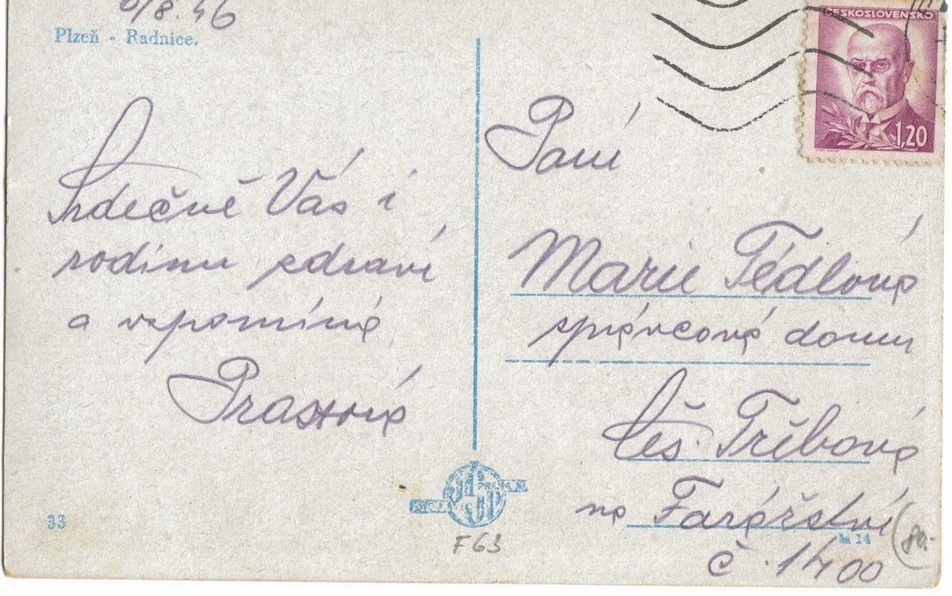 6/8.46
Plzeň - Radnice.
Srdečně Vás i
rodinu zdraví
a vzpomíná
33
ČESKOSLOVENSKO
1,20
Paní
Marie Tédlová
správcová domu
Čes. Třbová
na Farářství
č. 1400
M 14
80.-
F63